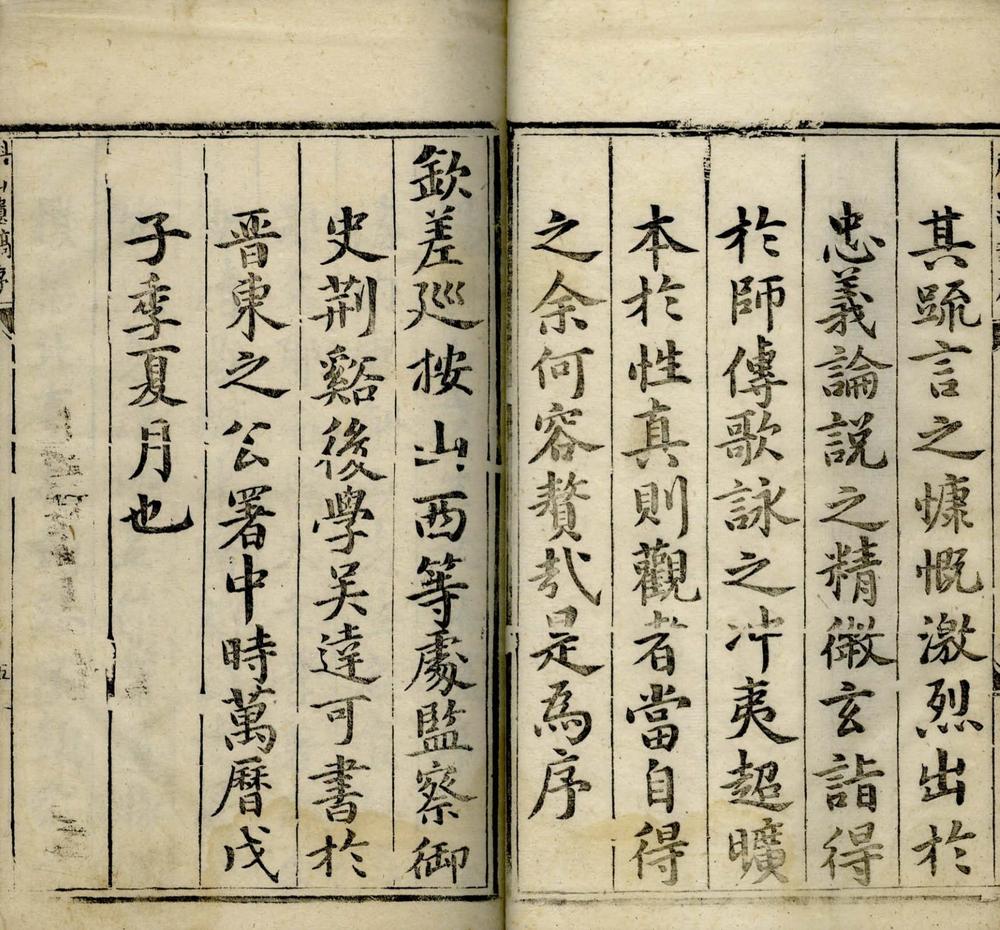 其䟽言之慷慨激烈出於
忠義論説之精微玄詣得
於師傳歌詠之冲夷超曠
本於性真則觀者當自得
之余何容贅哉是為序
欽差廵按山西等處監察御
史荆谿後學吴達可書於
晋東之公署中時萬曆戊
子季夏月也